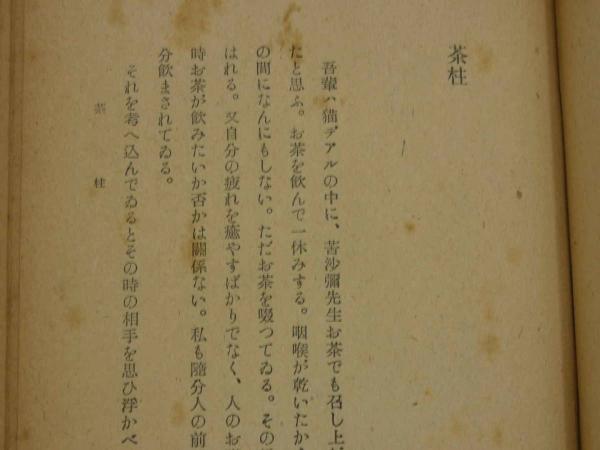 茶柱
吾輩ハ猫デアルの中に、苦沙彌先生お茶でも召し上
たと思ふ。お茶を飮んで一休みする。咽喉が乾いたか
の間になんにもしない。ただお茶を啜つてゐる。その
はれる。又自分の疲れを癒やすばかりでなく、人のお
時お茶が飮みたいか否かは關係ない。私も隨分人の前
分飮まされてゐる。
それを考へ込んでゐるとその時の相手を思ひ浮かべ
茶柱